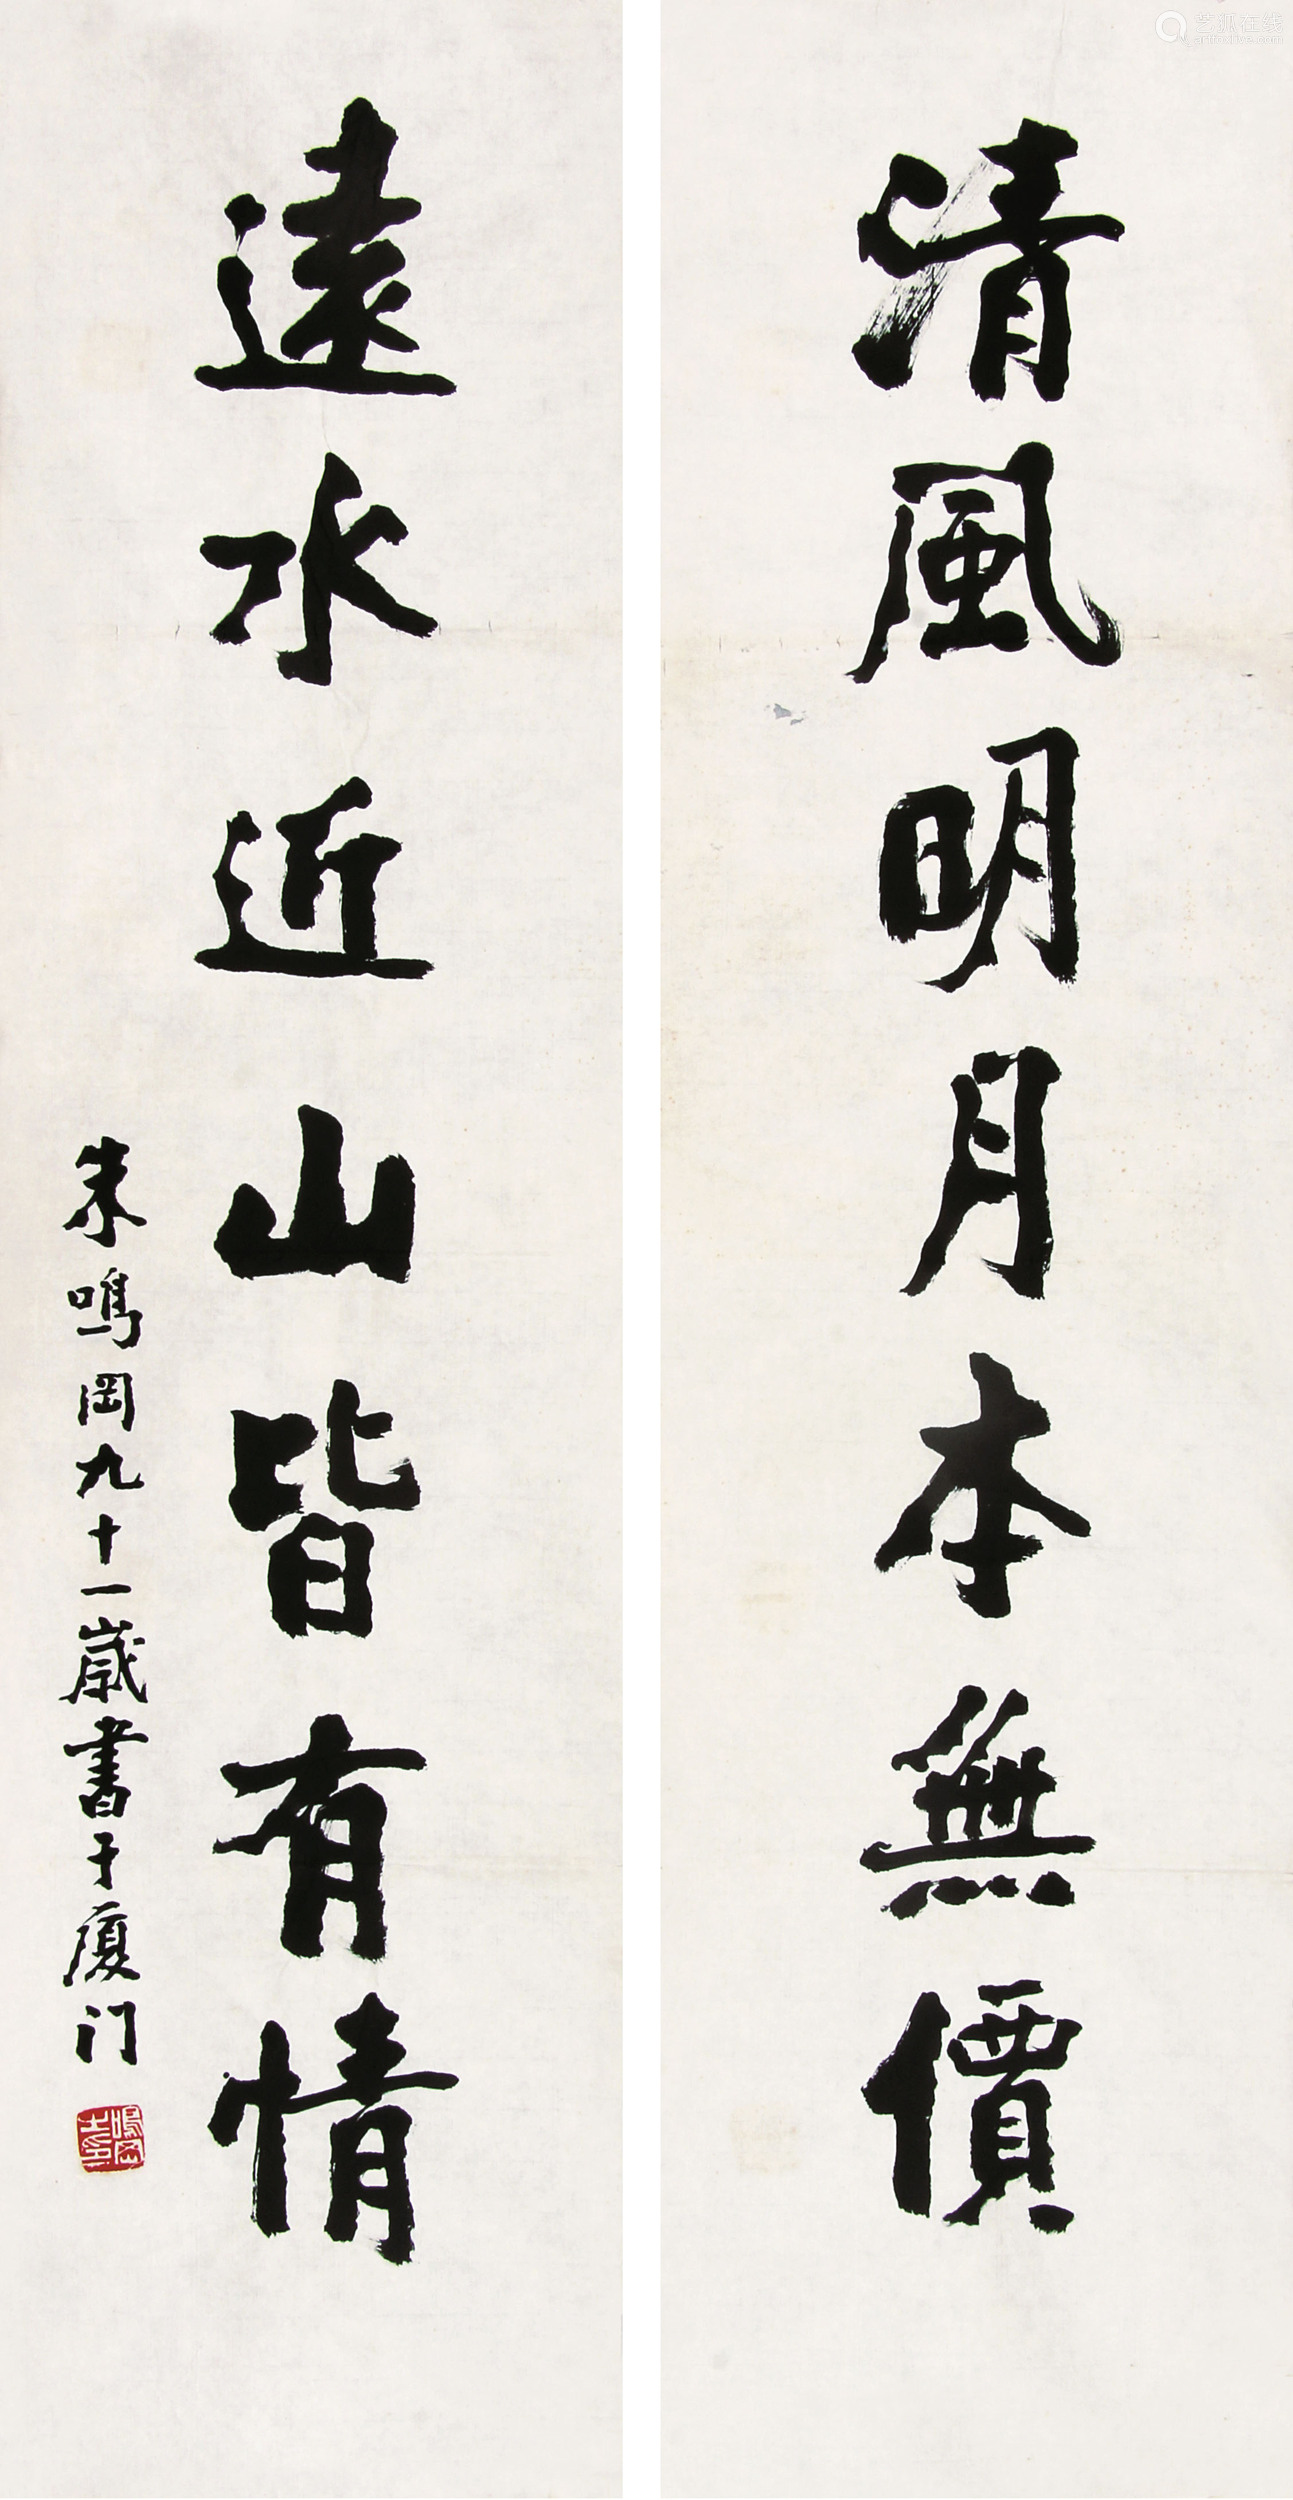 清風明月本無價
遠水近山皆有情
朱鳴岡九十一歲書于厦门
鳴岡
艺狐在线
artfoxlive.com